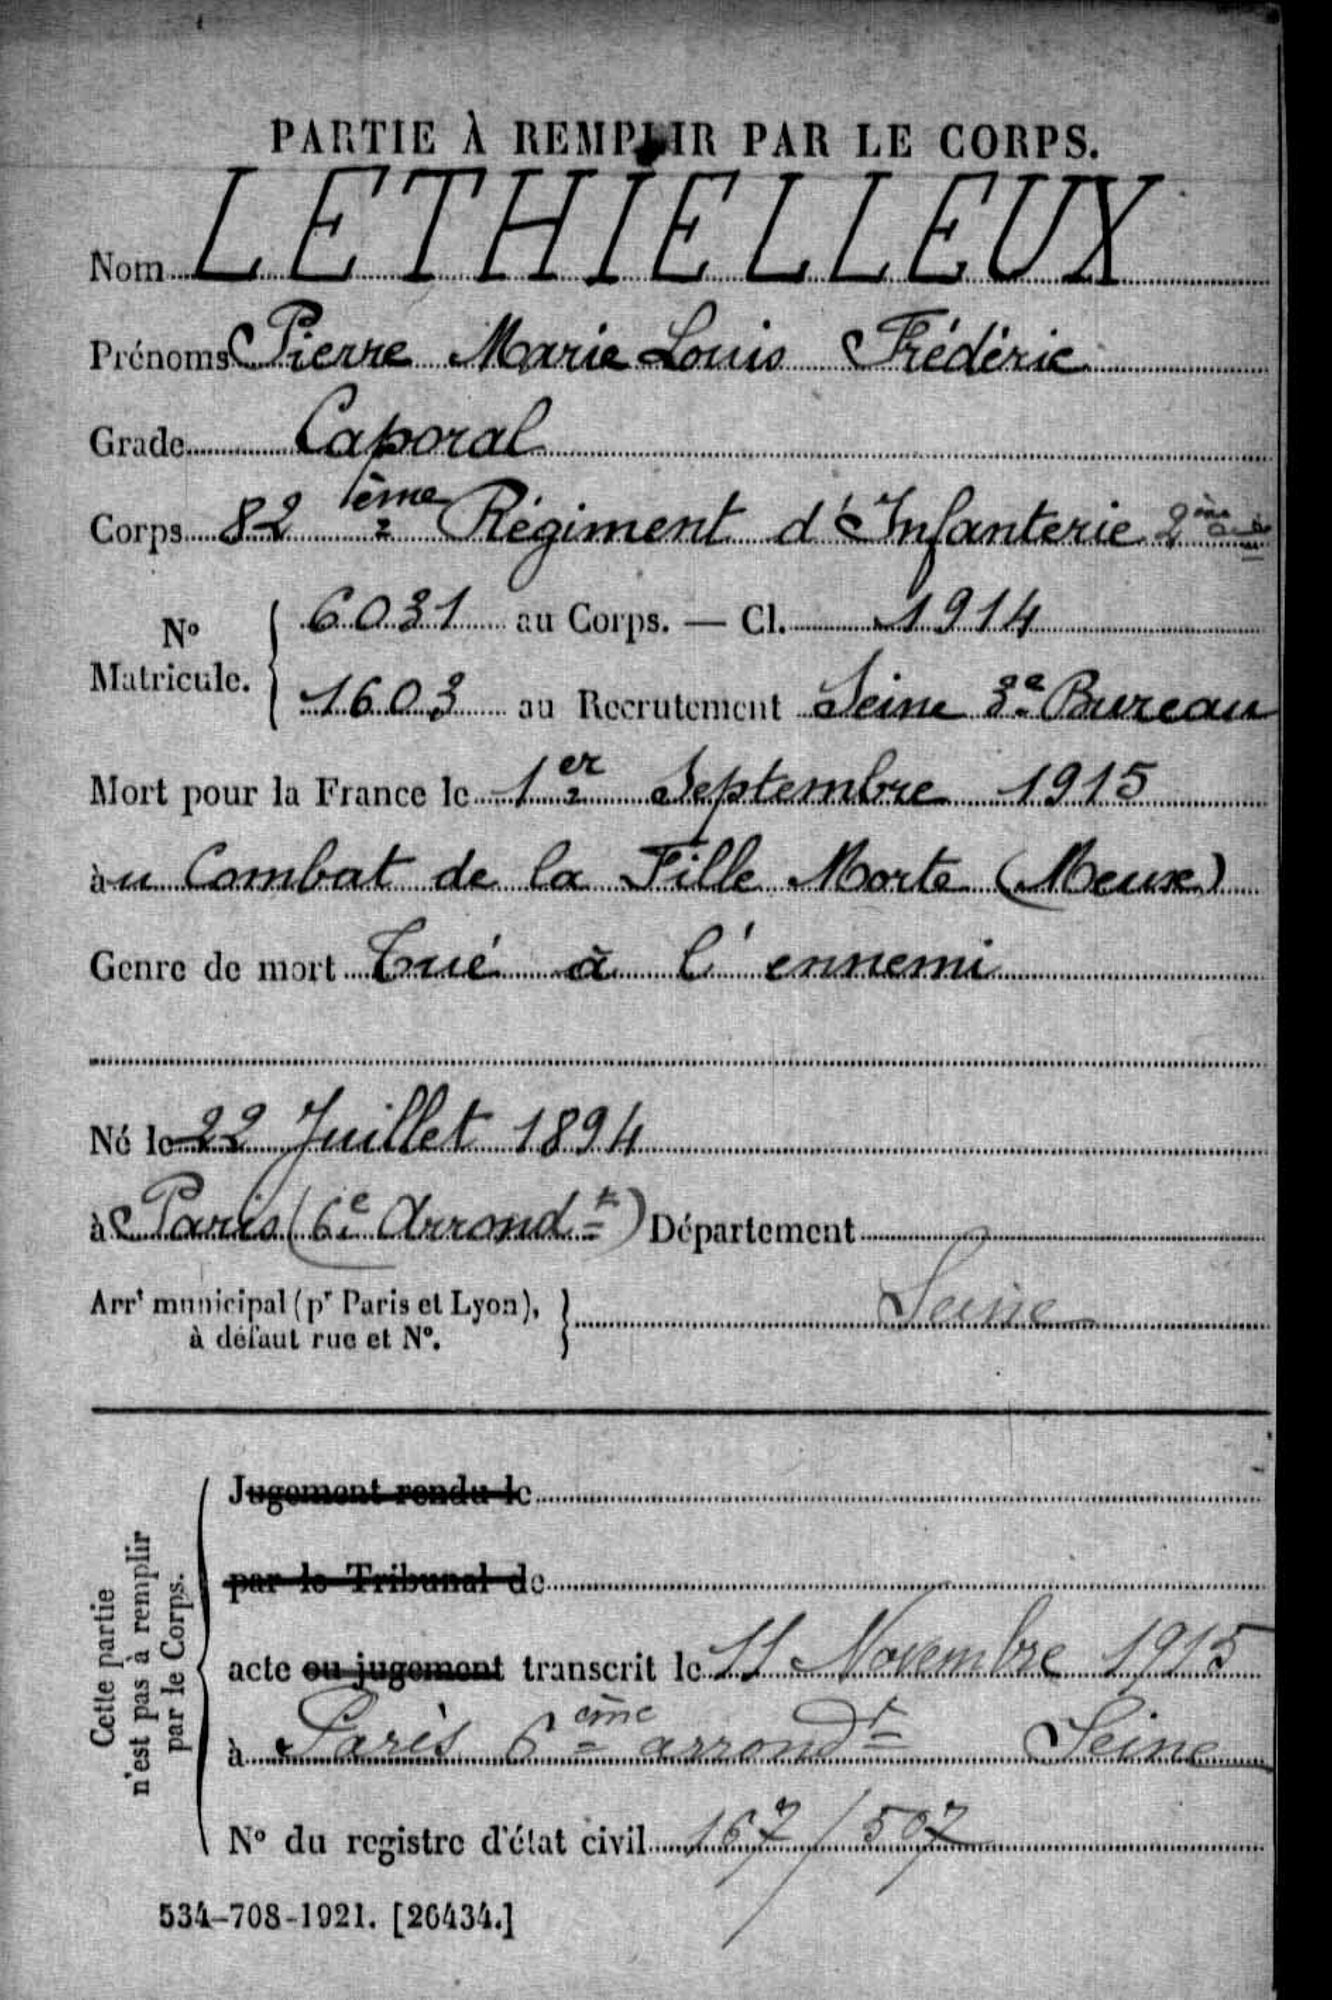 PARTIE À REMPLIR PAR LE CORPS.
Nom LETHIELLEUX
Prénoms Pierre Marie Louis Frédéric
Grade Caporal
Corps 82 ième Régiment d'Infanterie 2ème
N° Matricule. { 6031 au Corps. — Cl. 1914
1603 au Recrutement Seine 3e Bureau
Mort pour la France le 1er Septembre 1915
àu Combat de la Fille Morte (Meuse)
Genre de mort Tué à l'ennemi
Né le 22 Juillet 1894
à Paris (6e Arrondt) Département
Arrt municipal (pr Paris et Lyon), à défaut rue et N°. } Seine
Cette partie n'est pas à remplir par le Corps.
Jugement rendu le
par le Tribunal de
acte ou jugement transcrit le 11 Novembre 1915
à Paris 6ème arrondt Seine
N° du registre d'état civil 167/507
534-708-1921. [26434.]